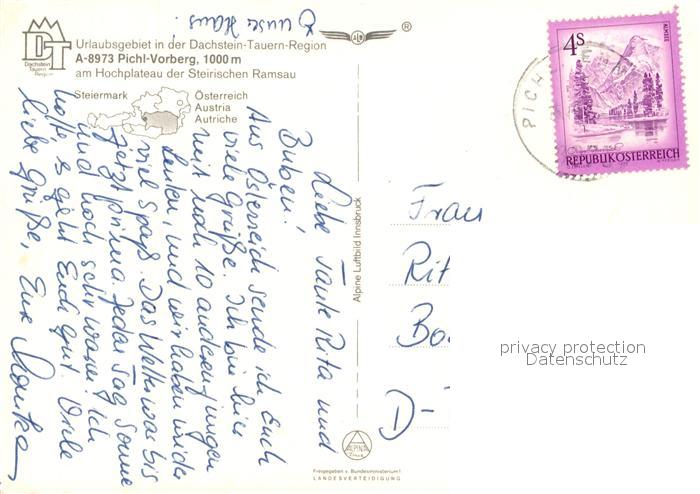 unser Haus!
Urlaubsgebiet in der Dachstein-Tauern-Region
A-8973 Pichl-Vorberg, 1000 m
am Hochplateau der Steirischen Ramsau
DT
Dachstein
Tauern
Region
Steiermark
Österreich
Austria
Autriche
Liebe Tante Rita und
Buben!
Aus Österreich sende ich Euch
viele Grüße. Ich bin hier
mit noch 10 anderen jungen
Leuten, und wir haben wieder
viel Spaß. Das Wetter was bis
jetzt prima. Jeden Tag Sonne
und noch sehr warm. Ich
hoffe es geht Euch gut. Viele
liebe Grüße, Eure
Alpine Luftbild Innsbruck
ALPINA
Freigegeben v. Bundesministerium f.
LANDESVERTEIDIGUNG
®
4s
ALMSEE
REPUBLIK ÖSTERREICH
PICH
Frau
Rit
Bo
D-
privacy protection
Datenschutz